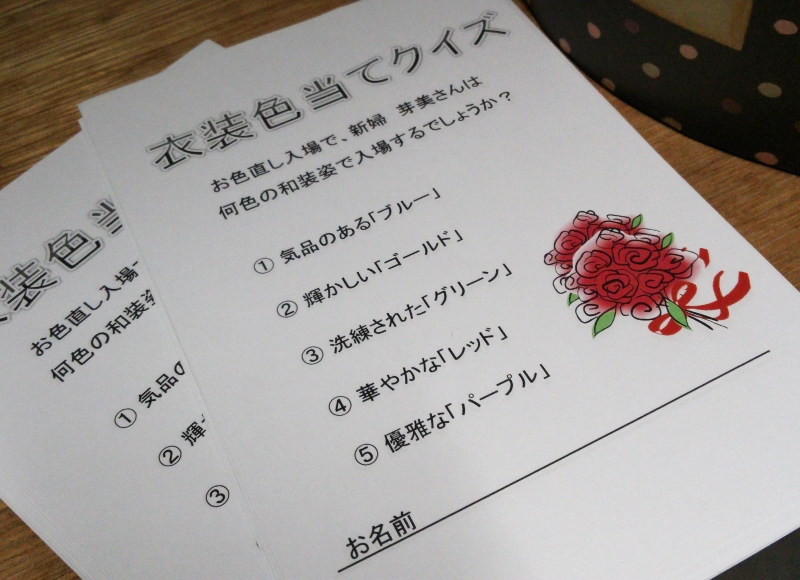 衣装色当てクイズ
お色直し入場で、新婦　芽美さんは
何色の和装姿で入場するでしょうか？
① 気品のある「ブルー」
② 輝かしい「ゴールド」
③ 洗練された「グリーン」
④ 華やかな「レッド」
⑤ 優雅な「パープル」
お名前
装色当
お色直し入場
何色の和装姿
① 気品の
② 輝
③